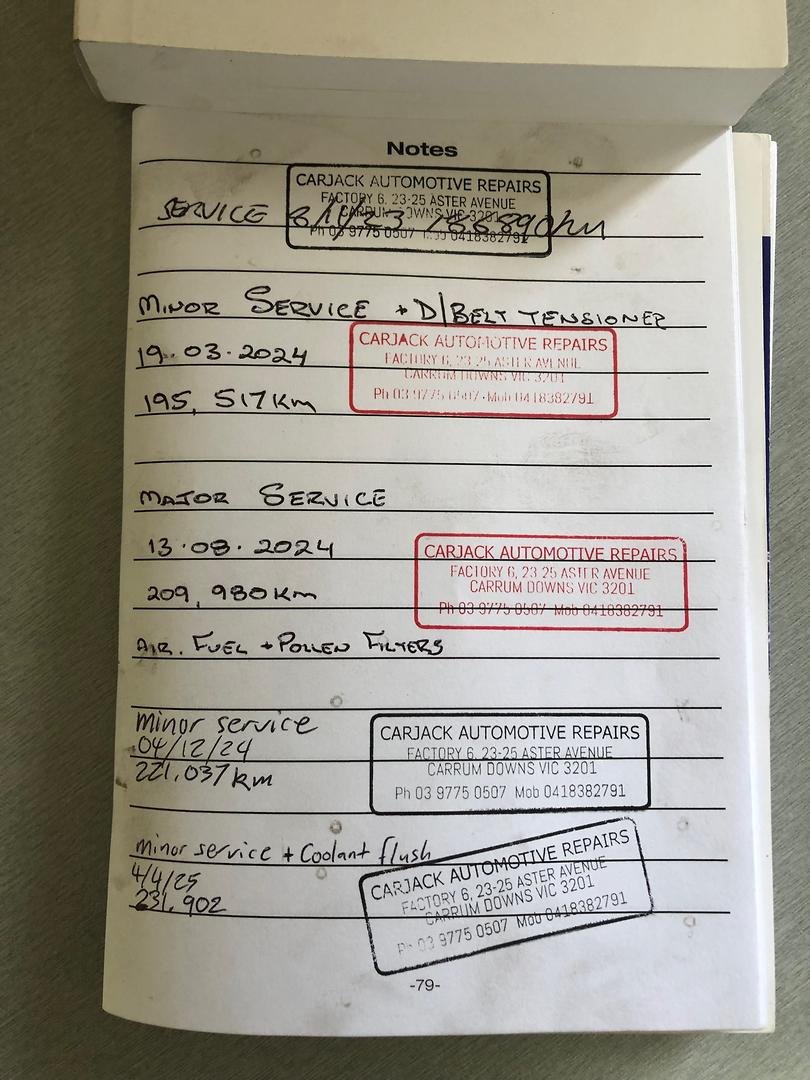 Notes
CARJACK AUTOMOTIVE REPAIRS
FACTORY 6, 23-25 ASTER AVENUE
CARRUM DOWNS VIC 3201
Ph 03 9775 0507 Mob 0418382791
SERVICE
MINOR SERVICE + D/BELT TENSIONER
19.03.2024
195,517Km
CARJACK AUTOMOTIVE REPAIRS
FACTORY 6, 23-25 ASTER AVENUE
CARRUM DOWNS VIC 3201
Ph 03 9775 0507 Mob 0418382791
MAJOR SERVICE
13.08.2024
209,980Km
CARJACK AUTOMOTIVE REPAIRS
FACTORY 6, 23-25 ASTER AVENUE
CARRUM DOWNS VIC 3201
Ph 03 9775 0507 Mob 0418382791
AIR, FUEL + POLLEN FILTERS
minor service
04/12/24
221,037km
CARJACK AUTOMOTIVE REPAIRS
FACTORY 6, 23-25 ASTER AVENUE
CARRUM DOWNS VIC 3201
Ph 03 9775 0507 Mob 0418382791
minor service + Coolant flush
4/4/25
231,902
CARJACK AUTOMOTIVE REPAIRS
FACTORY 6, 23-25 ASTER AVENUE
CARRUM DOWNS VIC 3201
Ph 03 9775 0507 Mob 0418382791
-79-